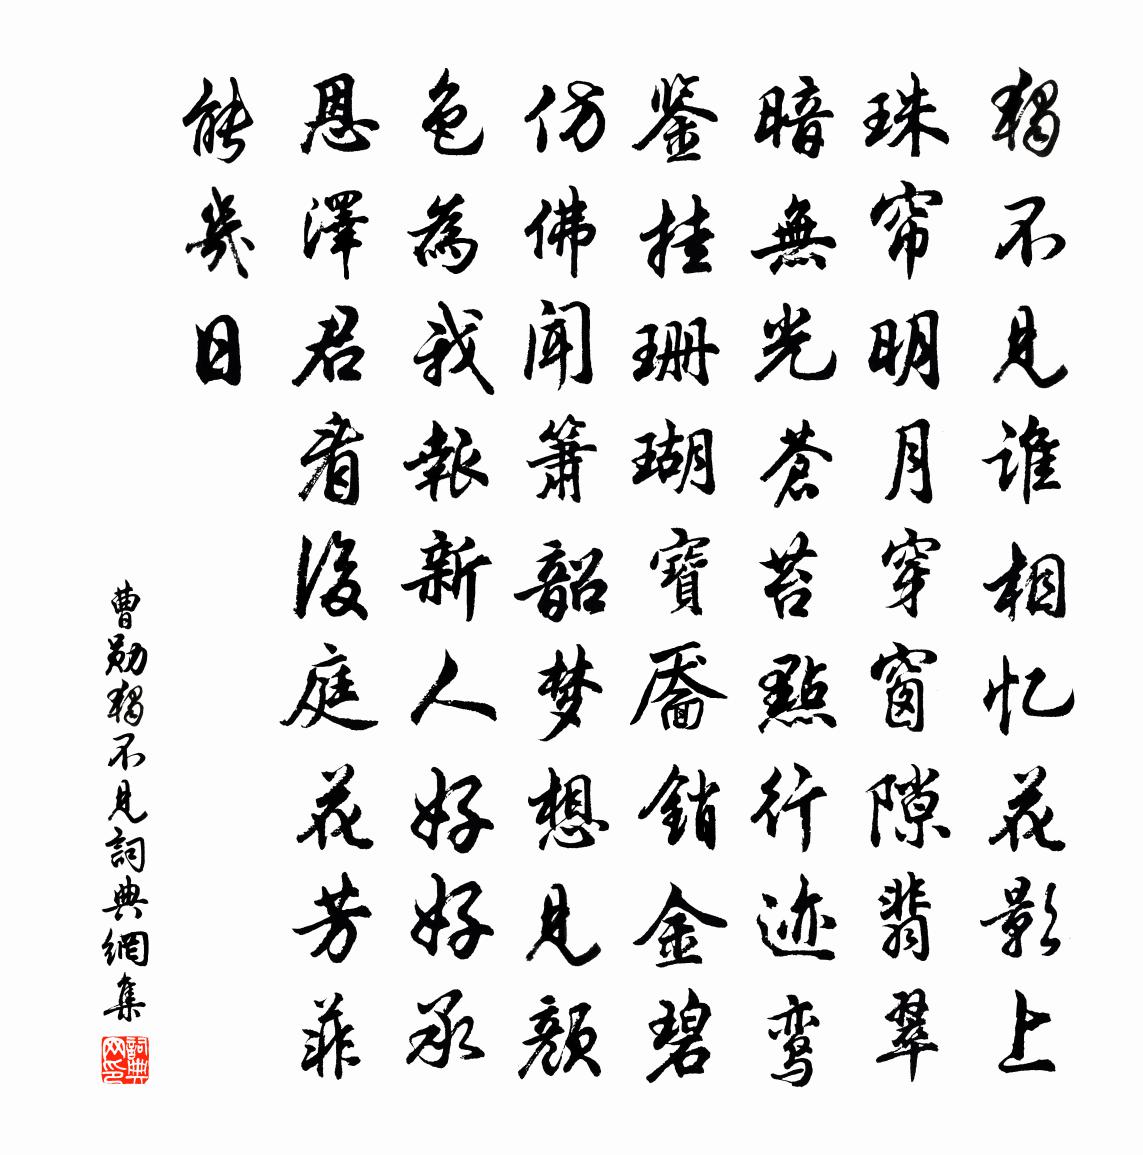 獨不見誰相忆花影上
珠帘明月穿窗隙翡翠
暗無光蒼苔點行迹鸾
鉴挂珊瑚寶靨銷金碧
仿佛闻箫韶梦想見顏
色為我報新人好好承
恩澤君看後庭花芳菲
能幾日
曹勋獨不見詞典網集
詞典网印